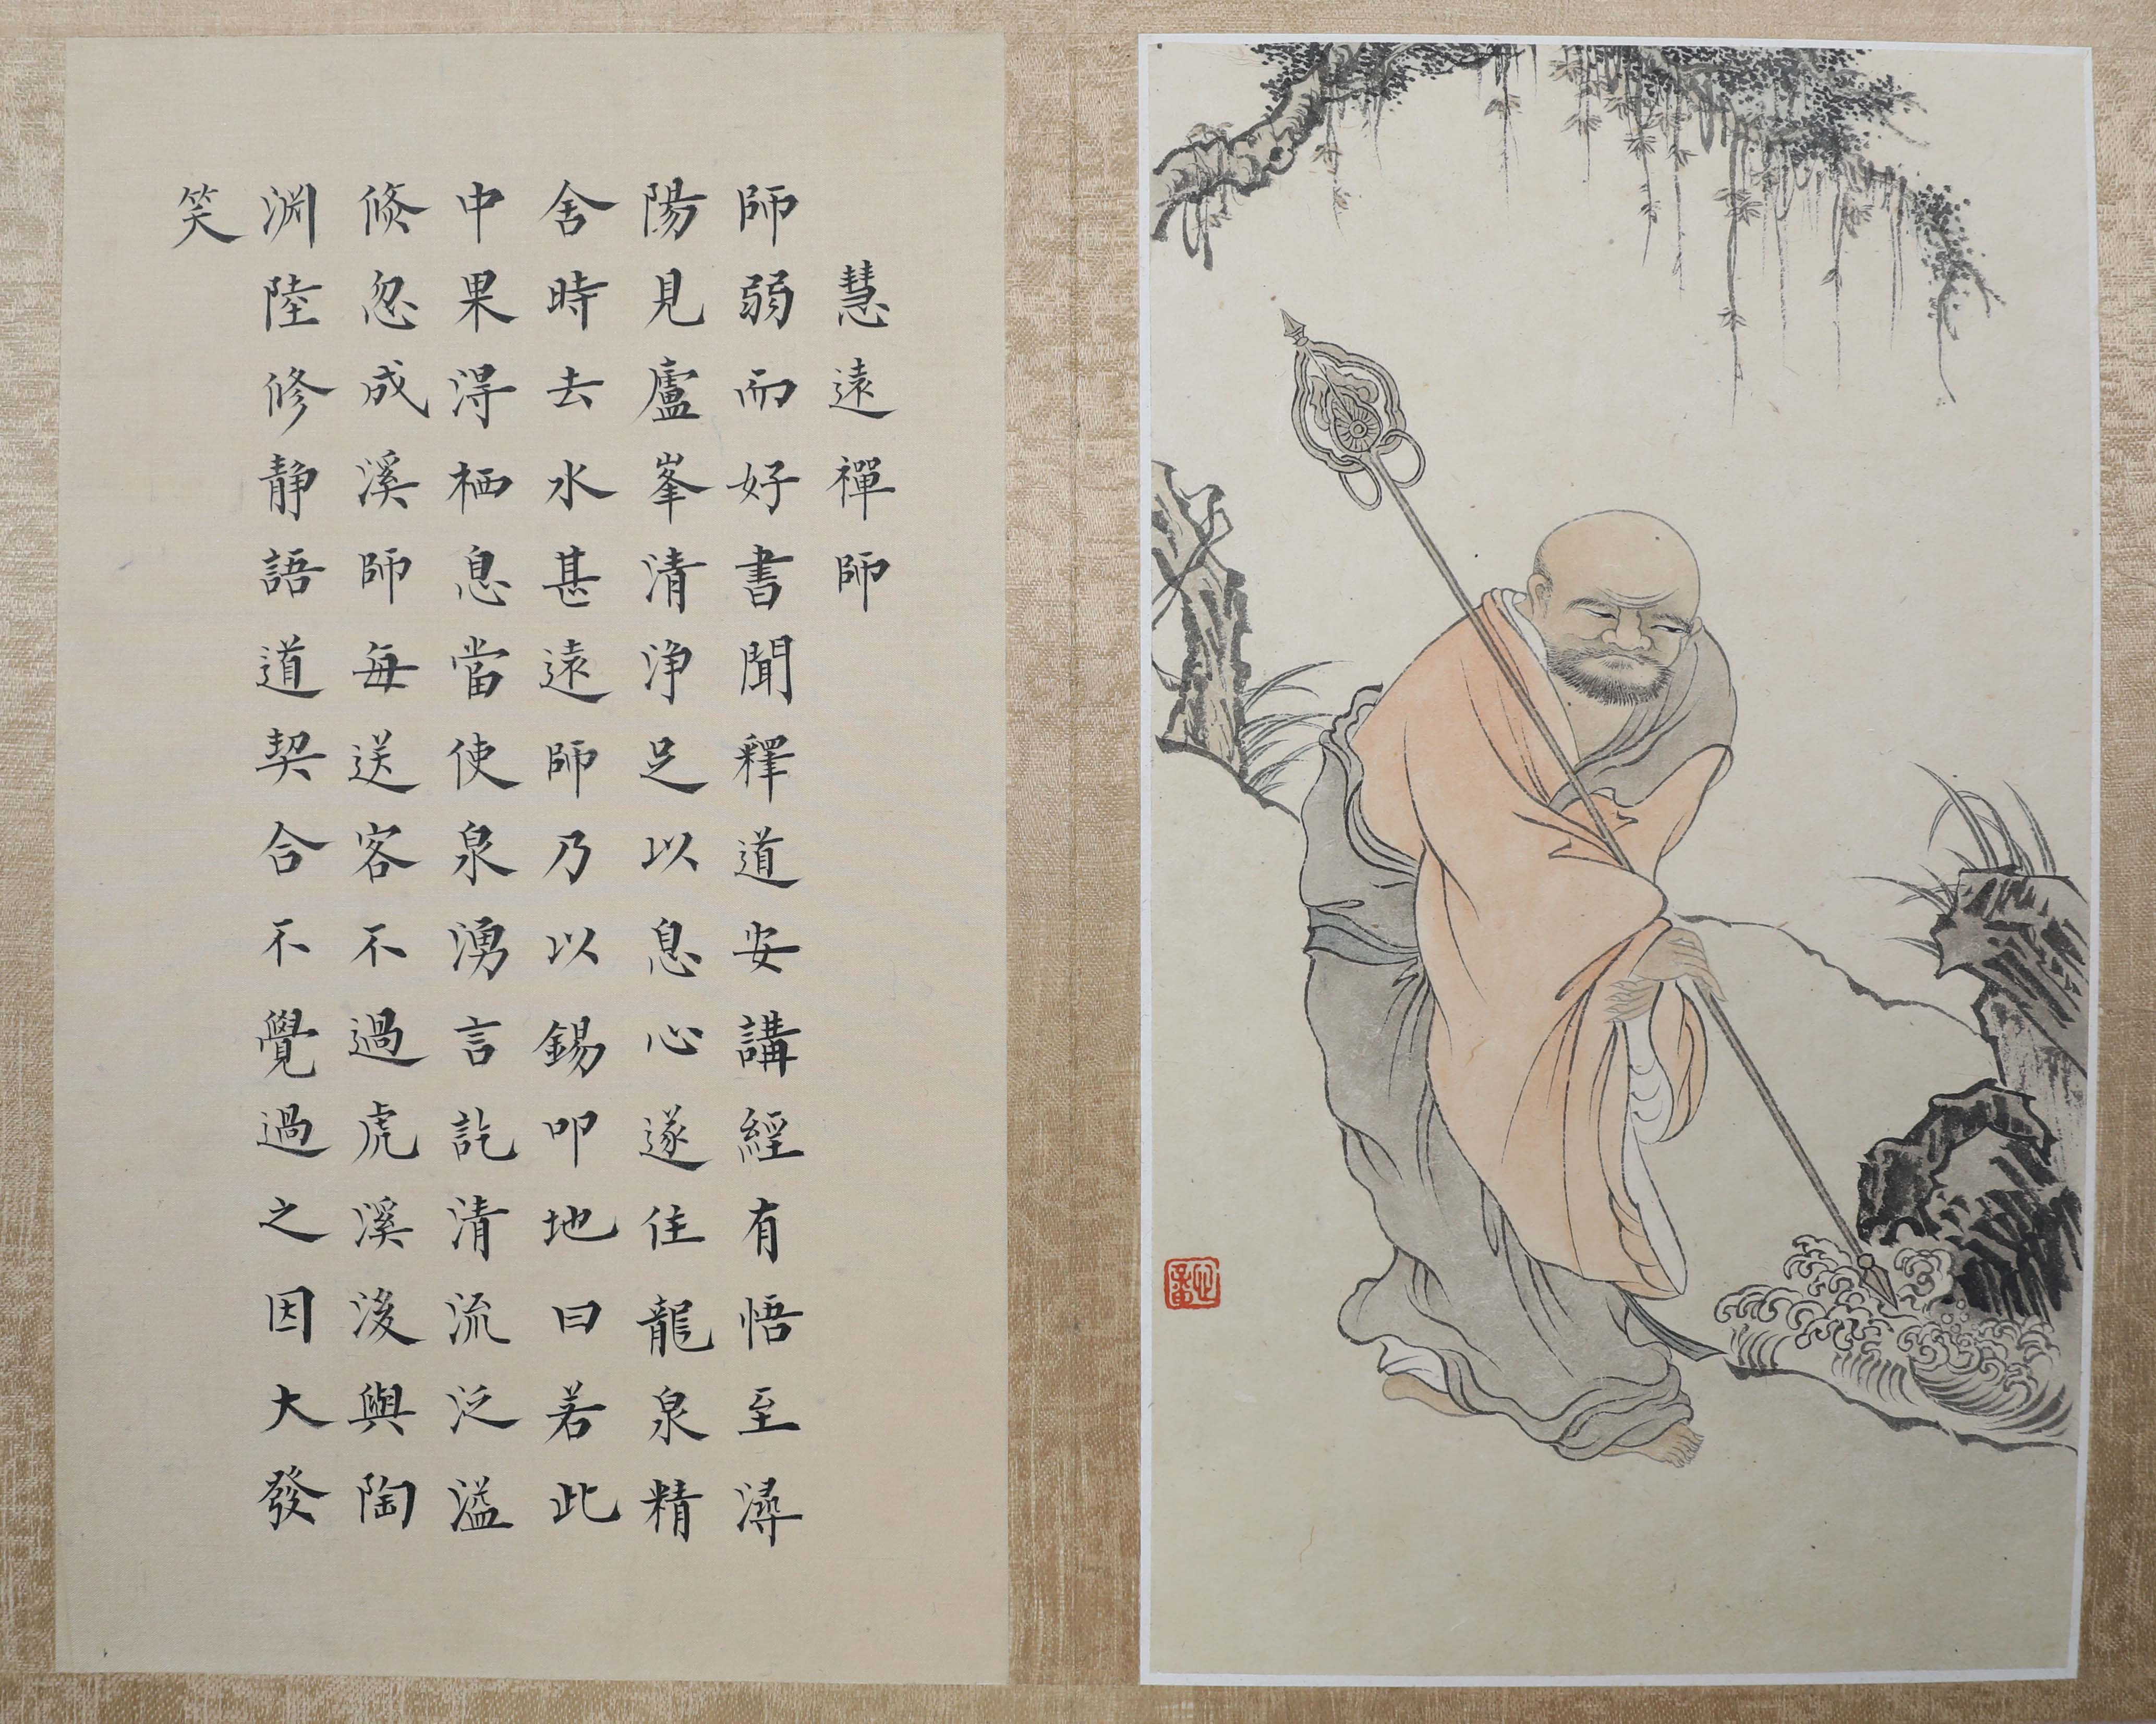 慧遠禪師
師弱而好書聞釋道安講經有悟至潯
陽見廬峯清淨足以息心遂住龍泉精
舍時去水甚遠師乃以錫叩地曰若此
中果得栖息當使泉湧言訖清流泛溢
倐忽成溪師每送客不過虎溪後與陶
淵陸修静語道契合不覺過之因大發
笑